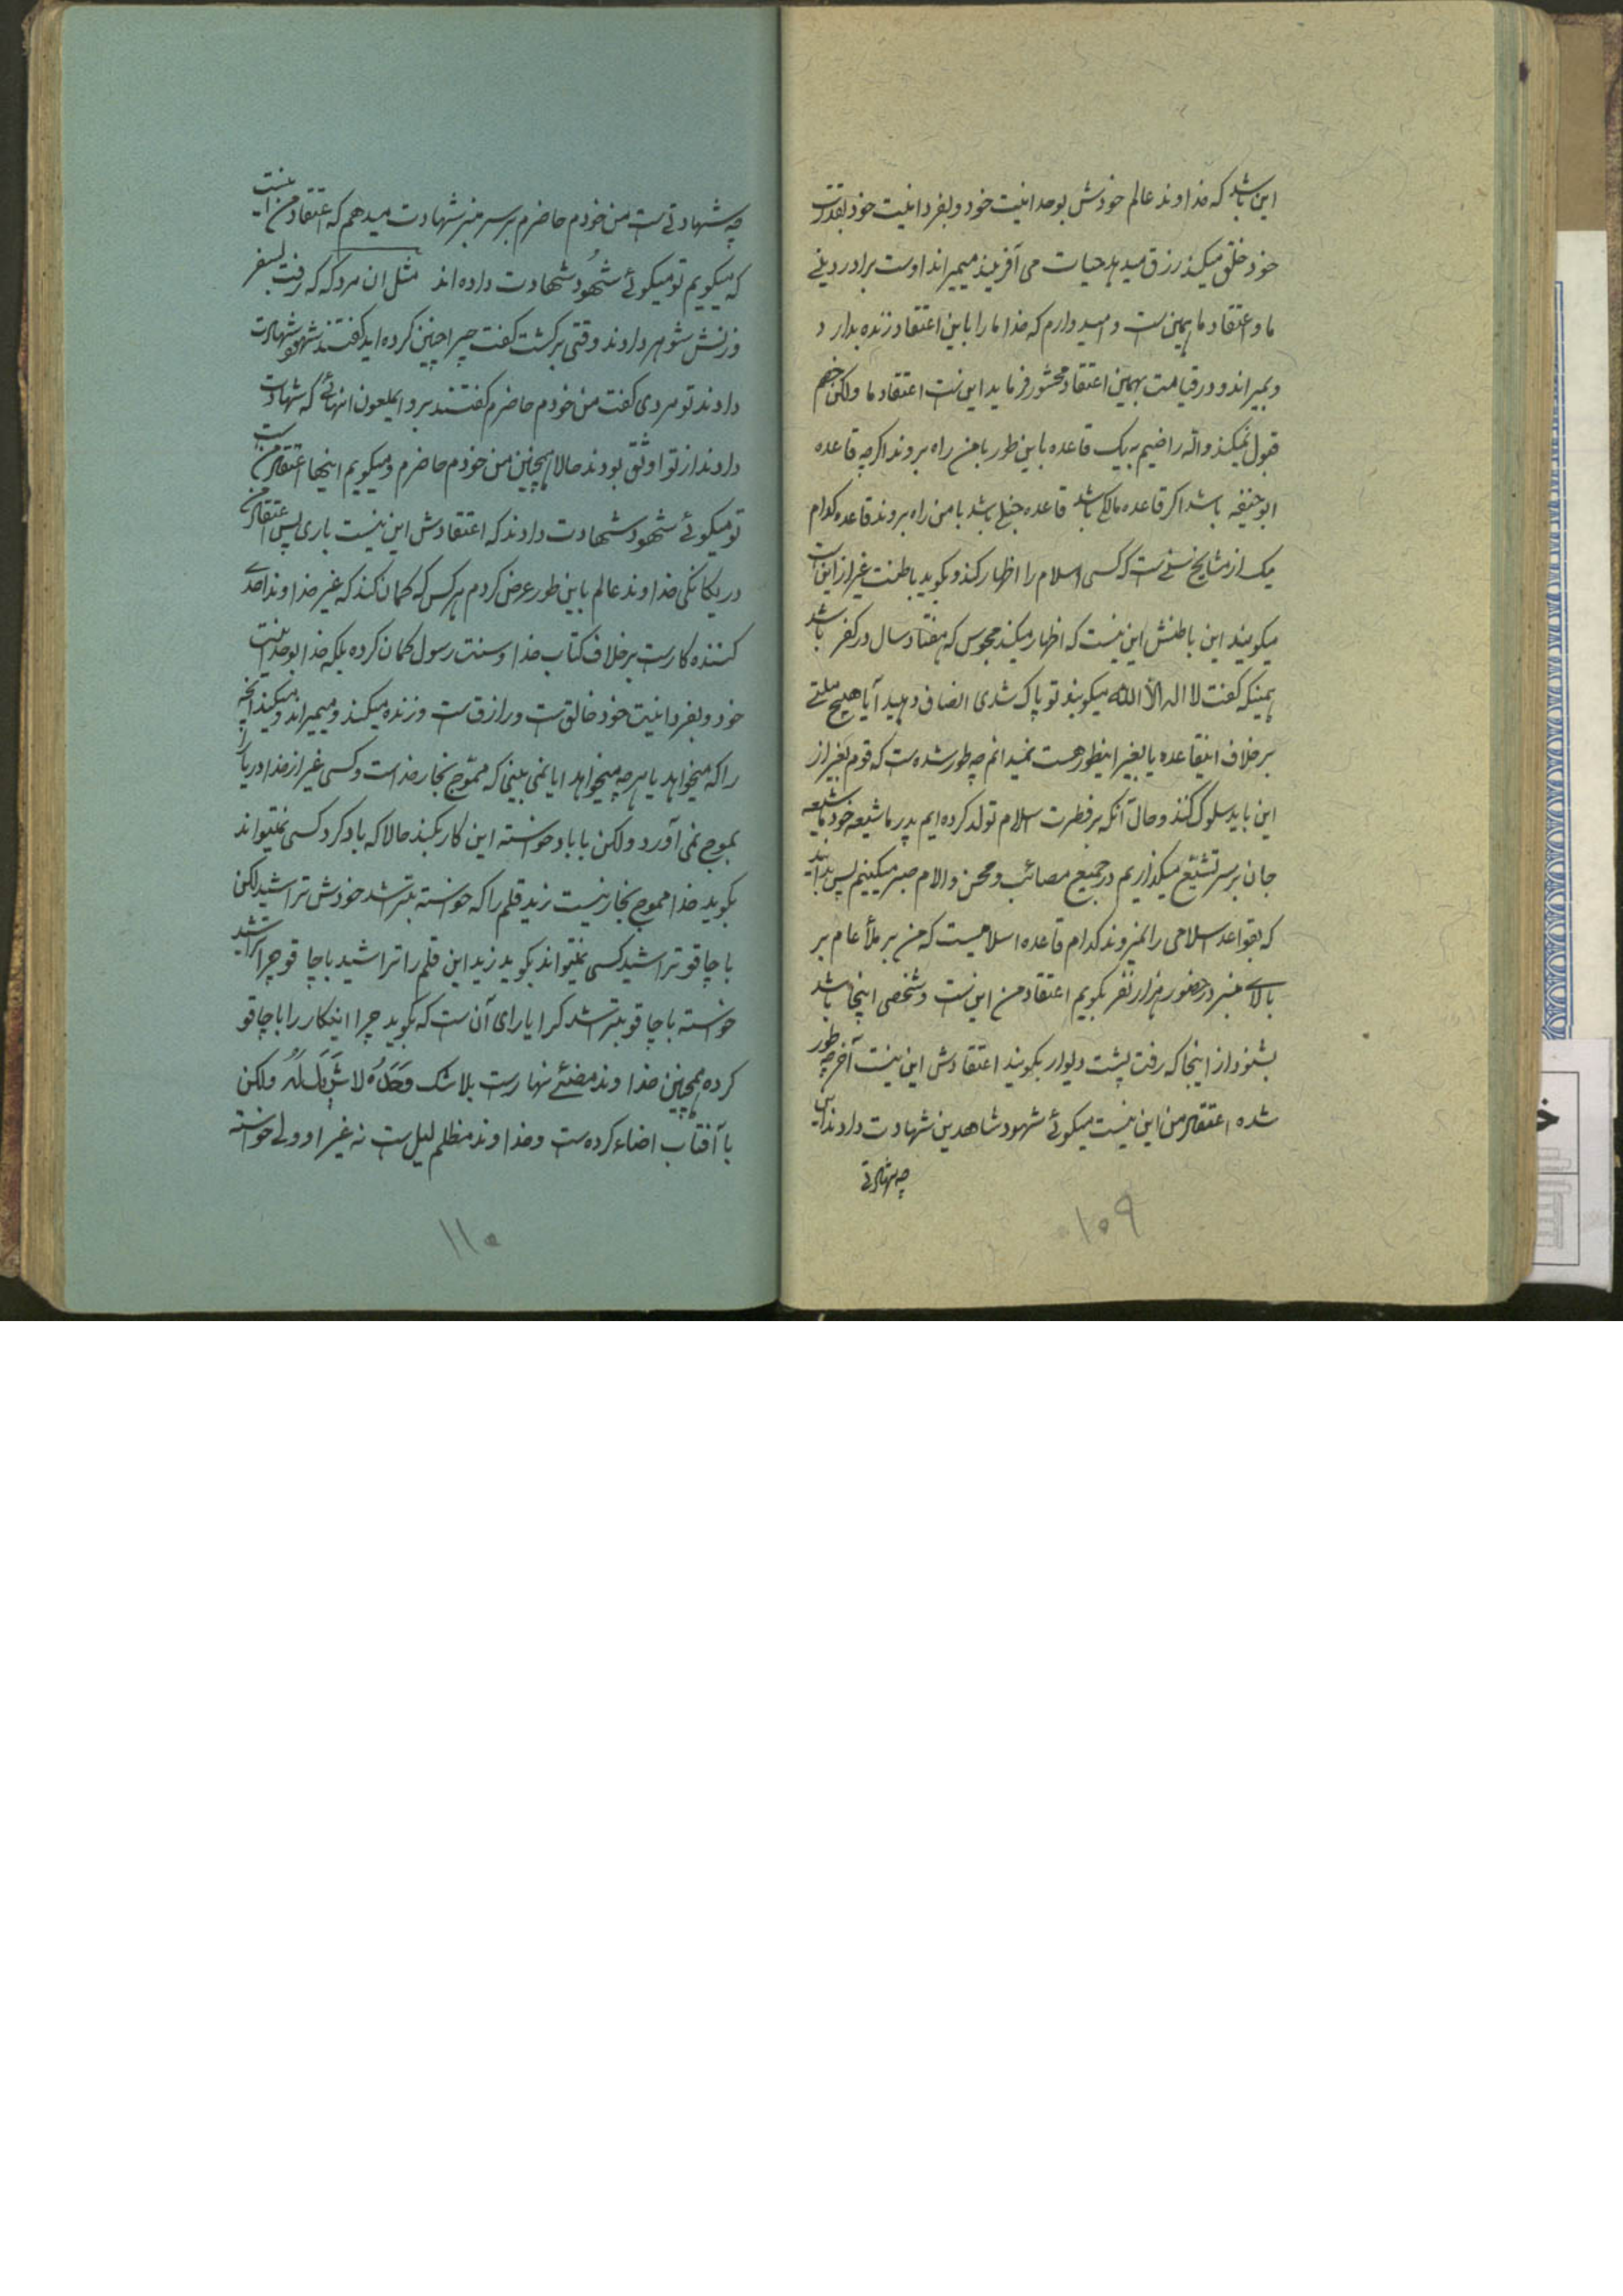 این باشد که خداوند عالم خودش بوحدانیت خود و بفردانیت خود بقدرت
خود خلق میکند رزق میدهد حیات می آفریند میمیراند اوست برادر دینی
ما و اعتقاد ما همین است و امیدوارم که خدا ما را باین اعتقاد زنده بدارد
و بمیراند و در قیامت بهمین اعتقاد محشور فرماید این است اعتقاد ما ولکن خصم
قبول نمیکند والله راضیم بیک قاعده باین طور با من راه بروند اگر چه قاعده
ابوحنیفه باشد اگر قاعده مالک باشد قاعده حنبل باشد با من راه بروند قاعده کدام
یک از مشایخ سنی است که کسی اسلام را اظهار کند و بگوید باطنت غیر از این است
میگویند این باطنش این نیست که اظهار میکند مجوس که هفتاد سال در کفر باشد
همینکه گفت لا اله الا الله میگویند تو پاک شدی انصاف دهید آیا هیچ ملتی
برخلاف اینقاعده یا بغیر اینطور هست نمیدانم چه طور شده است که قوم بغیر از
این باید سلوک کنند و حال آنکه بر فطرت اسلام تولد کرده ایم پدر ما شیعه خود ما شیعه
جان بر سر تشیّع میگذاریم در جمیع مصائب و محن و الام صبر میکنیم پس بدانید
که بقواعد اسلامی راه نمیروند کدام قاعده اسلامیست که من بر ملأ عام بر
بالای منبر در حضور هزار نفر بگویم اعتقاد من این است و شخصی اینجا باشد
بشنود از اینجا که رفت پشت دیوار بگویند اعتقادش این نیست آخر چه طور
شده اعتقاد من این نیست میگوئی شهود شاهدین شهادت دادند این
چه شهادتی
۱۰۹
چه شهادتی است من خودم حاضرم بر سر منبر شهادت میدهم که اعتقاد من اینست
که میگویم تو میگوئی شهود شهادت داده اند مثل ان مردکه که رفت بسفر
و زنش شوهر دادند وقتی برگشت گفت چرا چنین کرده اید گفتند شهود شهادت
دادند تو مردی گفت من خودم حاضرم گفتند برو ایملعون انهائی که شهادت
دادند از تو اوثق بودند حالا همچنین من خودم حاضرم و میگویم اینها اعتقاد من است
تو میگوئی شهود شهادت دادند که اعتقادش این نیست باری پس اعتقاد من
در یکانگی خداوند عالم باین طور عرض کردم هر کس که گمان کند که غیر خداوند احدی
کننده کار است برخلاف کتاب خدا و سنت رسول گمان کرده بلکه خدا بوحدانیت
خود و بفردانیت خود خالق است و رازق است و زنده میکند و میمیراند و میکند انچه
را که میخواهد یا هر چه میخواهد ایا نمی بینی که مموّج بحار خداست و کسی غیر از خدا دریا را
بموج نمی آورد ولکن با باد خواسته این کار بکند حالا که باد کرد کسی نمیتواند
بگوید خدا مموج بحار نیست زید قلم را که خواسته بتراشد خودش تراشید لکن
با چاقو تراشید کسی نمیتواند بگوید زید این قلم را تراشید با چاقو چرا تراشید
خواسته با چاقو بتراشد کرا یارای آن است که بگوید چرا اینکار را با چاقو
کرده همچنین خداوند مضئ نهار است بلا شک وَحْدَهُ لا شَریکَ لَهُ ولکن
با آفتاب اضاءه کرده است و خداوند مظلم لیل است نه غیر او ولی خواسته
۱۱۰